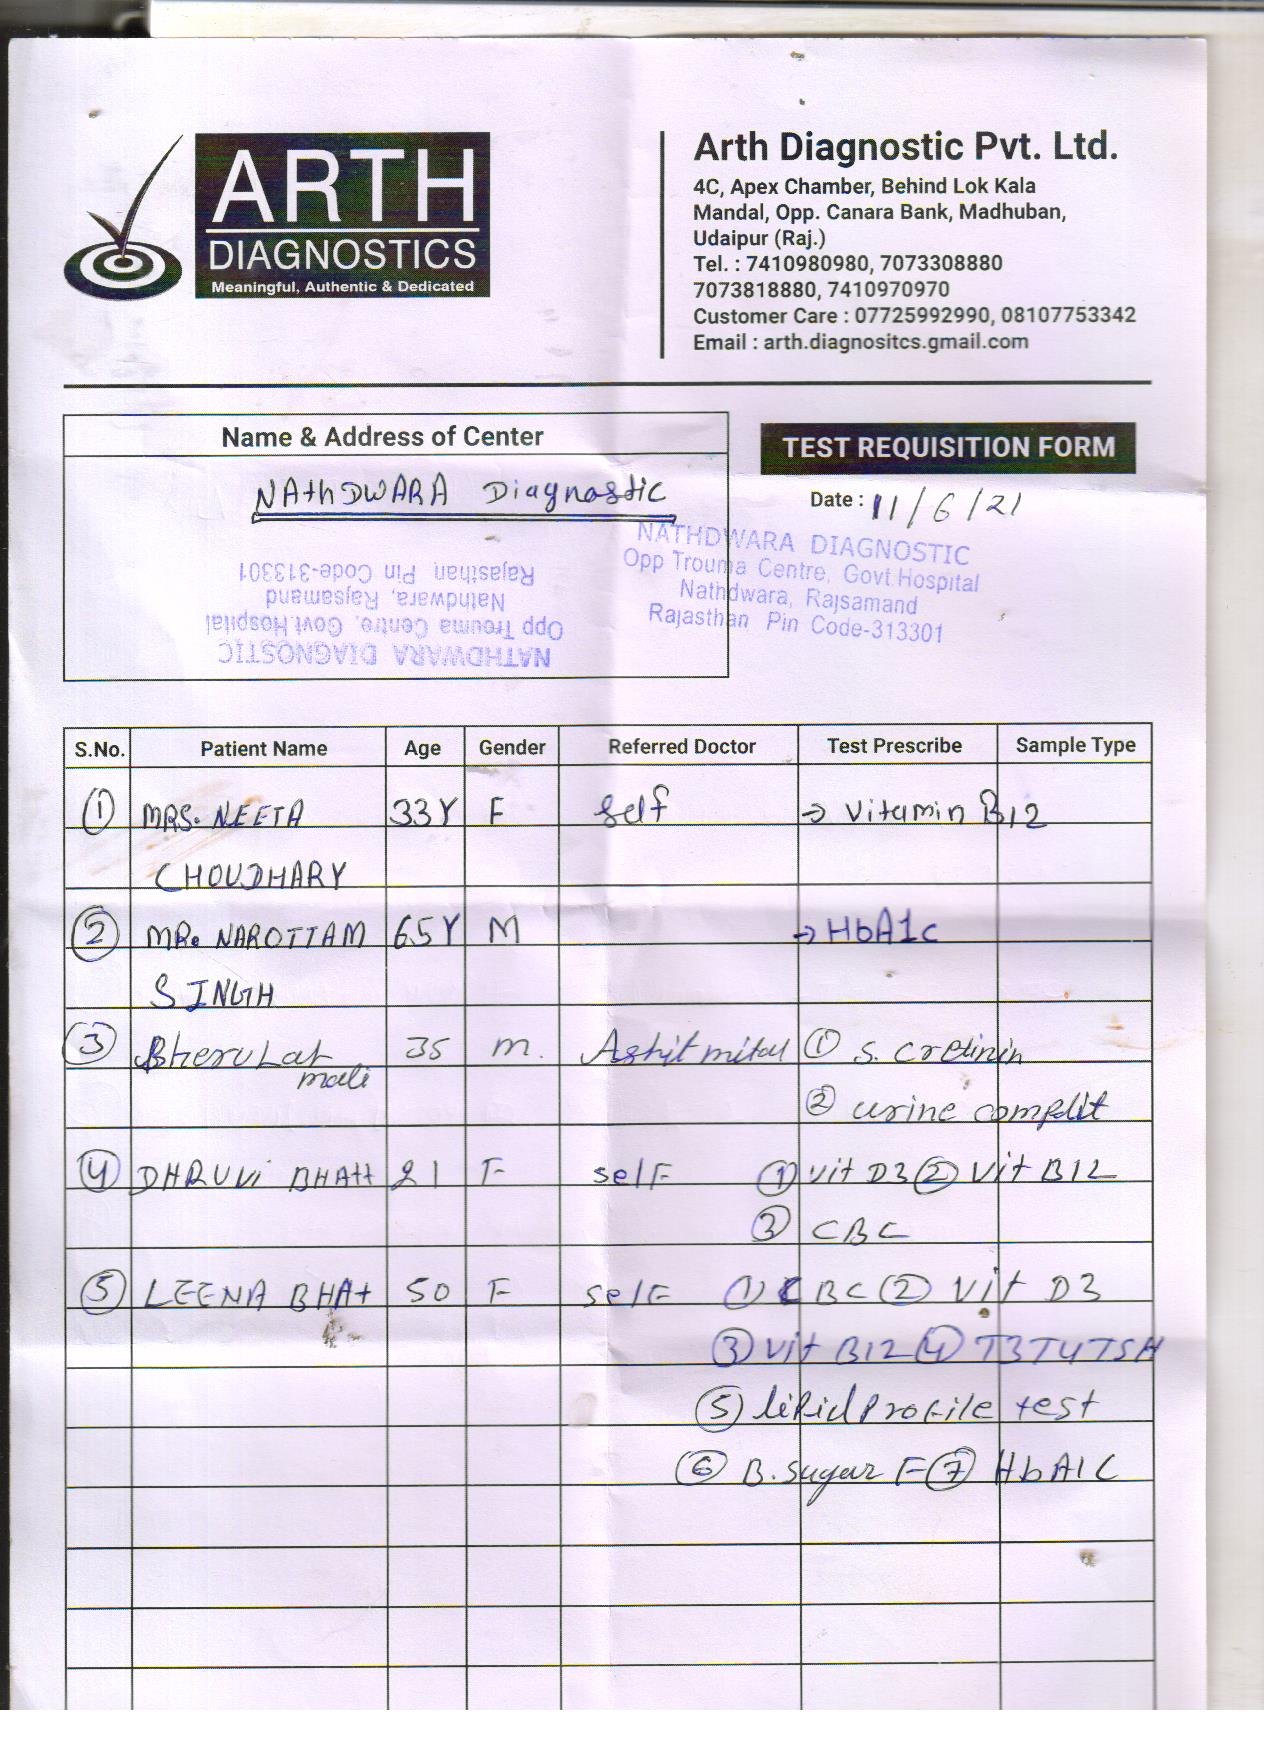 ARTH
DIAGNOSTICS
Meaningful, Authentic & Dedicated
Arth Diagnostic Pvt. Ltd.
4C, Apex Chamber, Behind Lok Kala
Mandal, Opp. Canara Bank, Madhuban,
Udaipur (Raj.)
Tel. : 7410980980, 7073308880
7073818880, 7410970970
Customer Care : 07725992990, 08107753342
Email : arth.diagnositcs.gmail.com
Name & Address of Center
NAthDWARA Diagnostic
NATHDWARA DIAGNOSTIC
Opp Trouma Centre, Govt.Hospital
Nathdwara, Rajsamand
Rajasthan Pin Code-313301
TEST REQUISITION FORM
Date : 11/6/21
NATHDWARA DIAGNOSTIC
Opp Trouma Centre, Govt.Hospital
Nathdwara, Rajsamand
Rajasthan Pin Code-313301
S.No. Patient Name Age Gender Referred Doctor Test Prescribe Sample Type
① MRS. NEETA 33Y F Self → Vitamin B12
CHOUDHARY
② MR. NAROTTAM 65Y M → HbA1c
SINGH
③ Bherulal 35 m. Ashit mital ① S. Cretinin
mali
② urine complit
④ DHRUVi BHAtt 21 F selF ① Vit D3 ② Vit B12
③ CBC
⑤ LEENA BHAt 50 F selF ① CBC ② Vit D3
③ Vit B12 ④ T3T4TSH
⑤ lipid profile test
⑥ B. sugar F ⑦ HbA1C